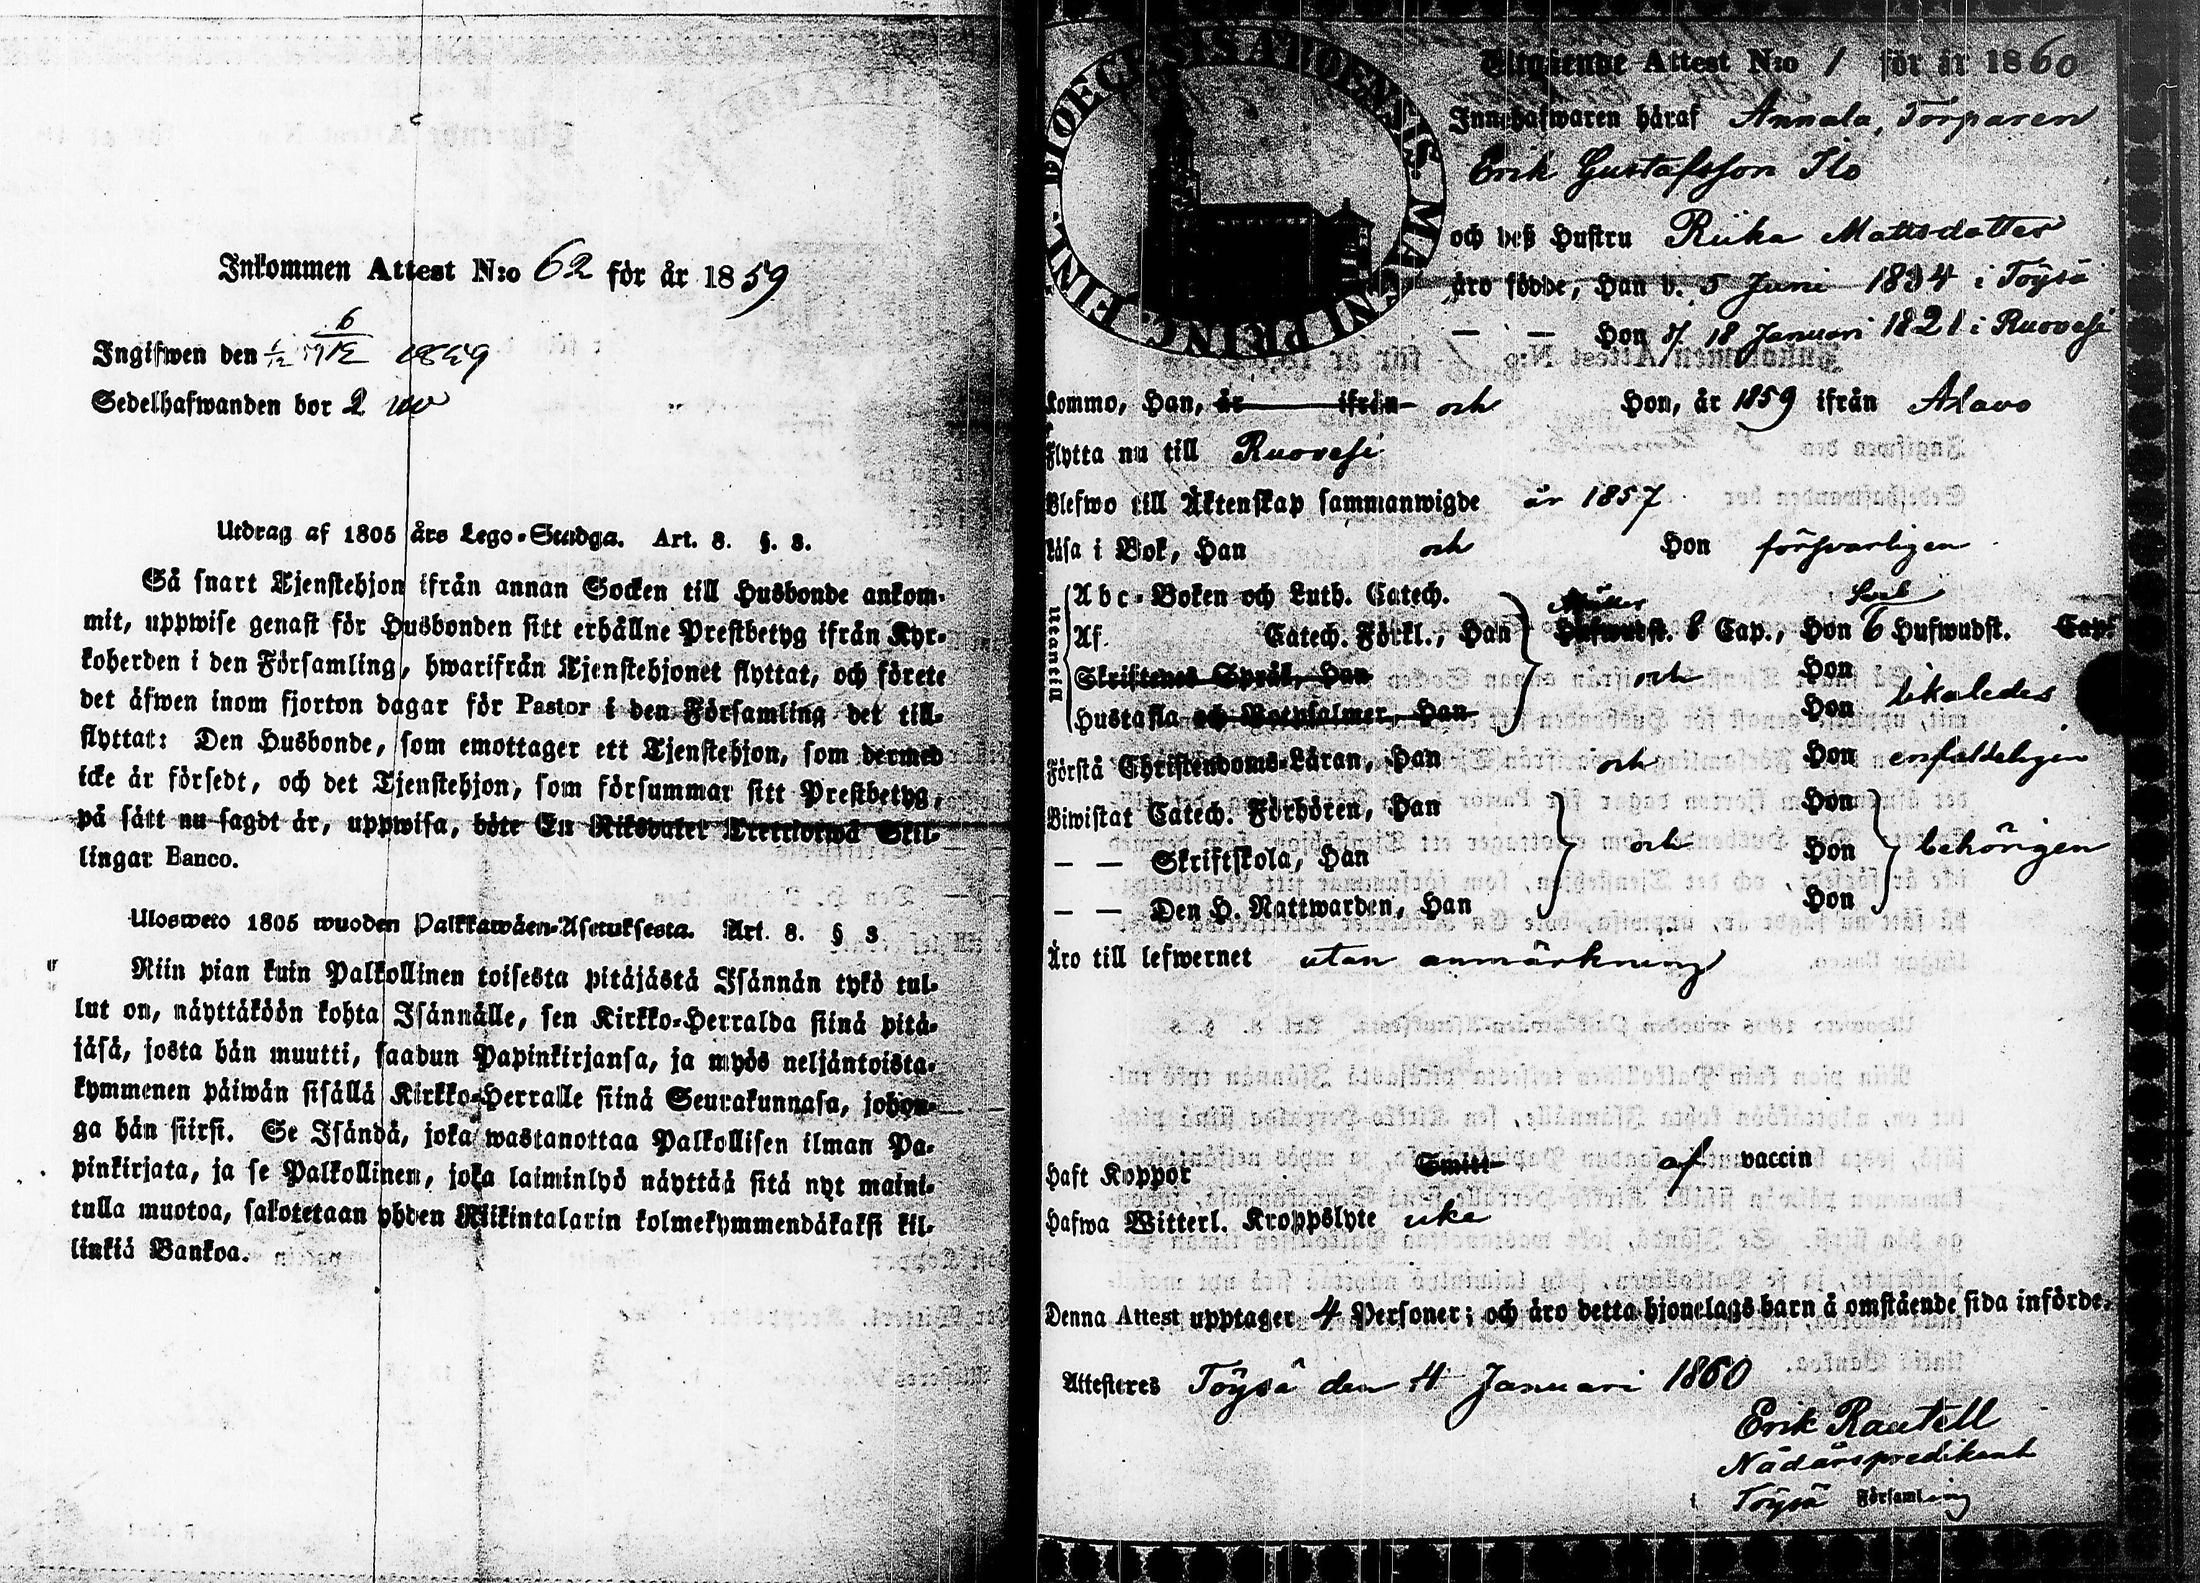 Inkommen Attest N:o 62 för år 1859
Ingifwen den 1859
Sedelhafwanden bor 2
Utdrag af 1805 års Lego-Stadga. Art. 8. §. 3.
Så snart Tjenstehjon ifrån annan Socken till Husbonde ankom-
mit, uppwise genast för Husbonden sitt erhållne Prestbetyg ifrån Kyr-
koherden i den Församling, hwarifrån Tjenstehjonet flyttat, och förete
det äfwen inom fjorton dagar för Pastor i den Församling det till-
flyttat: Den Husbonde, som emottager ett Tjenstehjon, som dermed
icke är försedt, och det Tjenstehjon, som försummar sitt Prestbetyg,
på sätt nu sagdt är, uppwisa, böte En Riksdaler Trettiotwå Skil-
lingar Banco.
Ulosweto 1805 wuoden Palkkawäen-Asetuksesta. Art. 8. § 3
Niin pian kuin Palkollinen toisesta pitäjästä Isännän tykö tul-
lut on, näyttäköön kohta Isännälle, sen Kirkko-Herralda siinä pitä-
jäsä, josta hän muutti, saadun Papinkirjansa, ja myös neljäntoista-
kymmenen päiwän sisällä Kirkko-Herralle siinä Seurakunnasa, johon-
ga hän siirsi. Se Isändä, joka wastanottaa Palkollisen ilman Pa-
pinkirjata, ja se Palkollinen, joka laiminlyö näyttää sitä nyt maini-
tulla muotoa, sakotetaan yhden Riikintalarin kolmekymmendäkaksi kil-
linkiä Bankoa.
DIOECESIS ABOENSIS. MAGNI PRINC. FINL.
Utgående Attest N:o 1 för år 1860
Innehafwaren häraf Annala, Torparen
Erik Gustafsson Ilo
och deß Hustru Riika Mattsdotter
äro födde, Han d. 5 Juni 1834 i Töysä
— — Hon d. 18 Januari 1821 i Ruovesi
Kommo, Han, år ifrån och Hon, år 1859 ifrån Alavo
Flytta nu till Ruovesi
Blefwo till Äktenskap sammanwigde år 1857
Läsa i Bok, Han och Hon försvarligen
Utantill
Abc-Boken och Luth. Catech.
Af. Catech. Förkl., Han Hufwudst. 6 Cap., Hon 6 Hufwudst. Cap.
Skriftenes Språk, Han och Hon
Hustafla och Botpsalmer, Han Hon likaledes
Förstå Christendoms-Läran, Han och Hon enfaldeligen
Biwistat Catech. Förhören, Han Hon
— — Skriftskola, Han och Hon behörigen
— — Den H. Nattwarden, Han Hon
Äro till lefwernet utan anmärkning
Haft Koppor Smitt- af vaccin
Hafwa Witterl. Kroppslyte icke
Denna Attest upptager 4 Personer; och äro detta hjonelags barn å omstående sida införde.
Attesteres Töysä den 4 Januari 1860
Erik Rautell
Nådårspredikant
i Töysä Församling